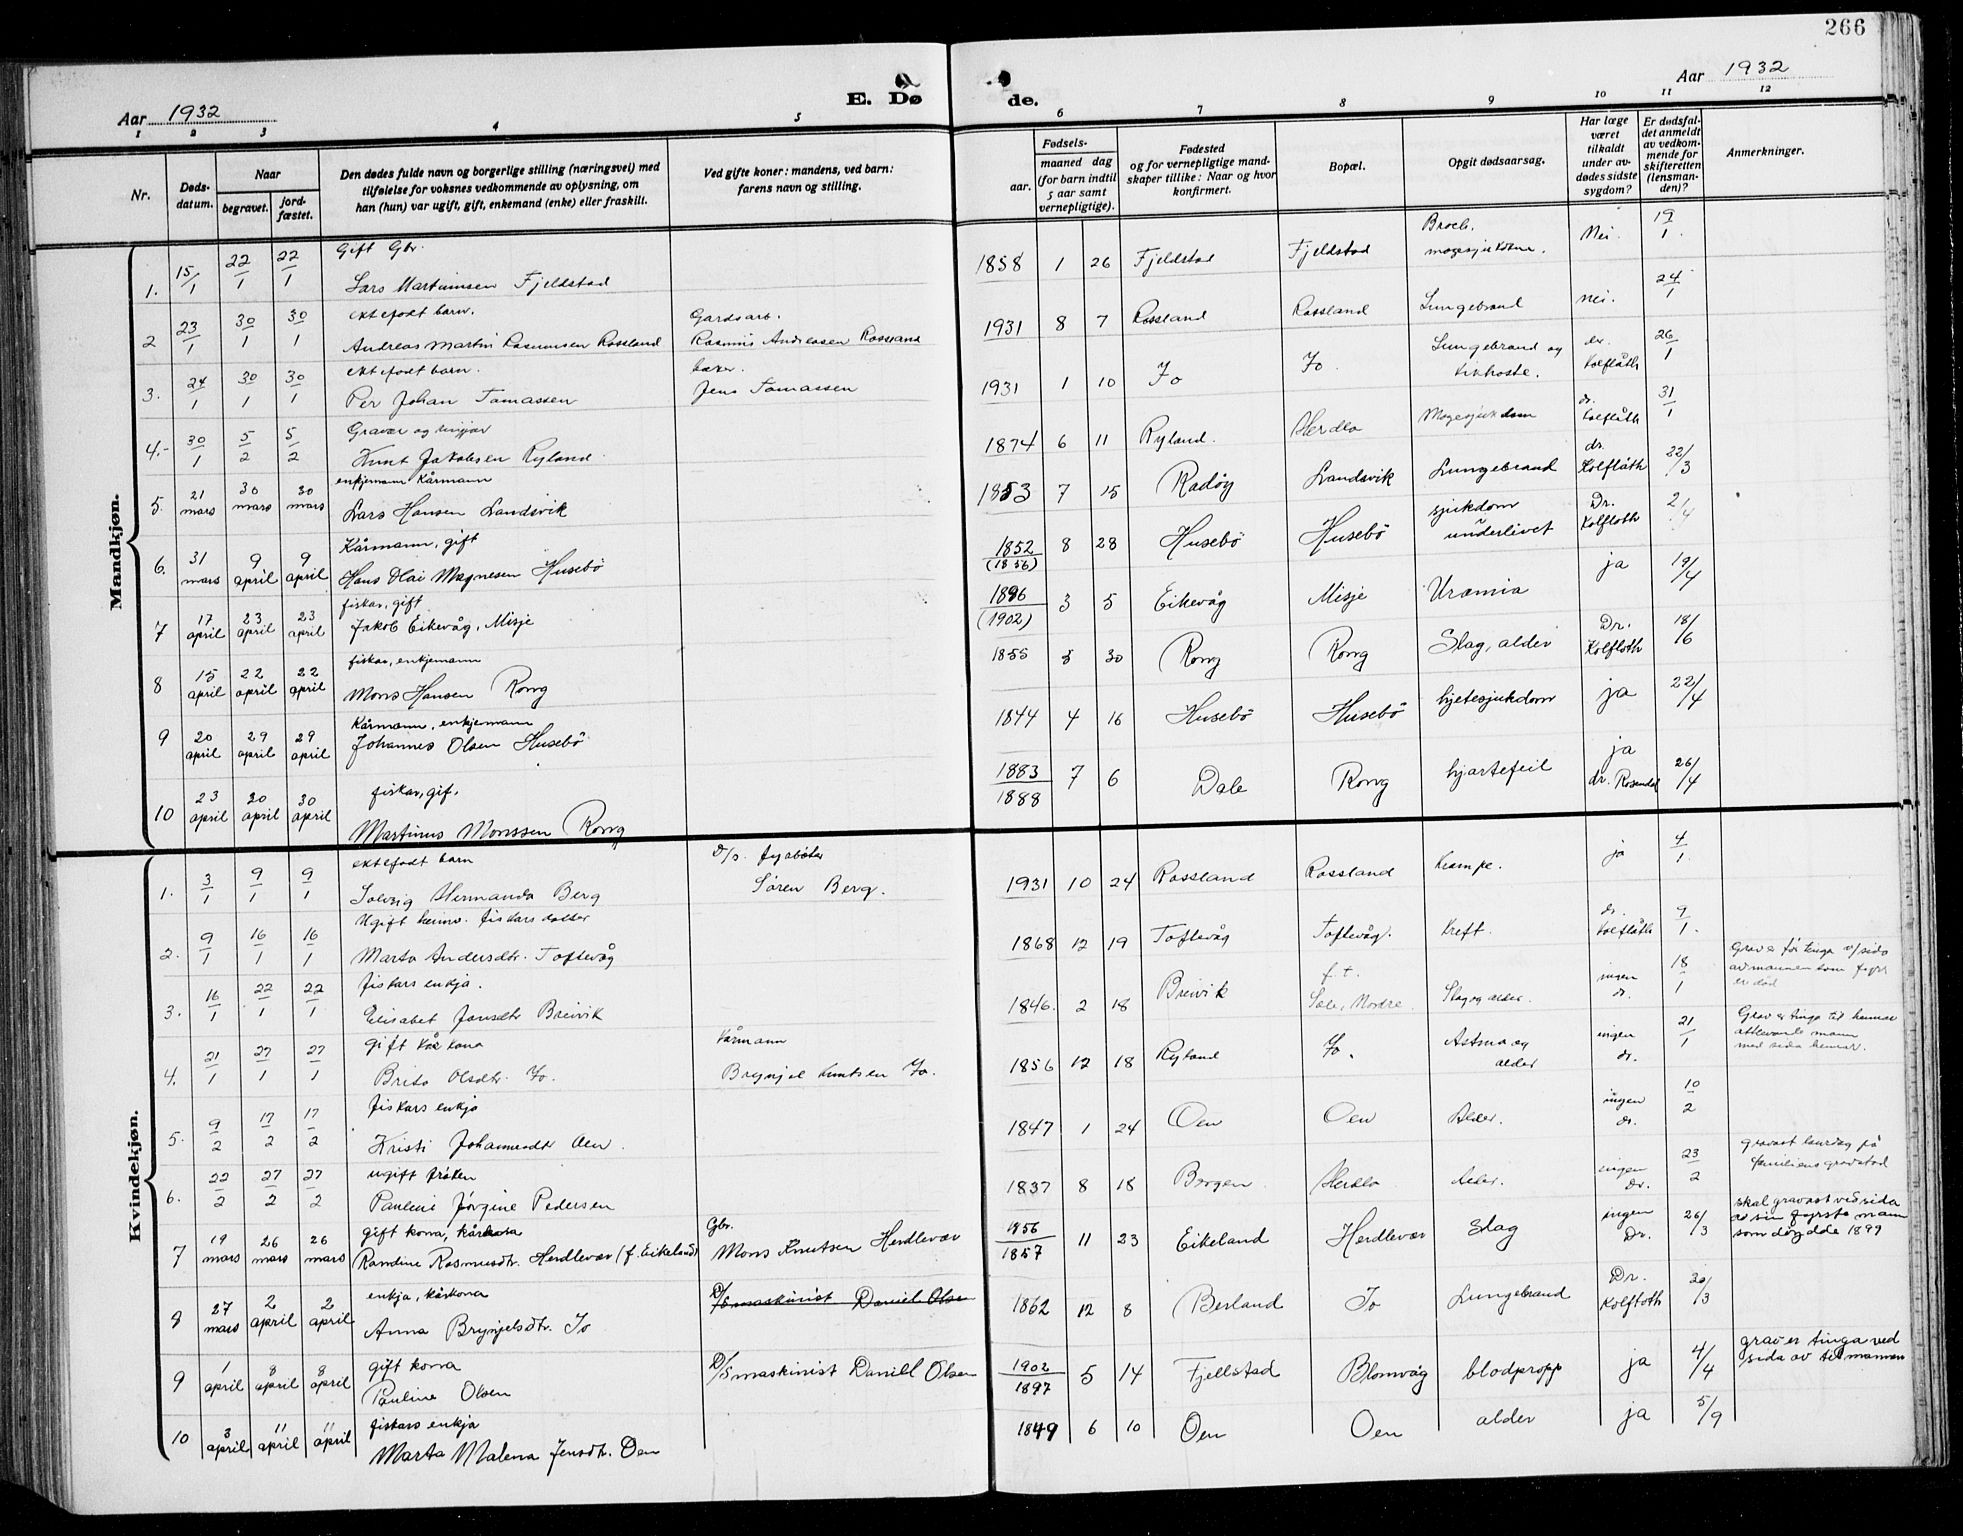 266
Aar 1932
E. Dø
de.
Aar 1932
1 2 3 4 5 6 7 8 9 10 11 12
Nr.
Døds-
datum.
Naar
begravet.
jord-
fæstet.
Den dødes fulde navn og borgerlige stilling (næringsvei) med
tilføielse for voksnes vedkommende av oplysning, om
han (hun) var ugift, gift, enkemand (enke) eller fraskilt.
Ved gifte koner: mandens, ved barn:
farens navn og stilling.
Fødsels-
aar.
maaned dag
(for barn indtil
5 aar samt
vernepligtige).
Fødested
og for vernepligtige mand-
skaper tillike: Naar og hvor
konfirmert.
Bopæl.
Opgit dødsaarsag.
Har læge
været
tilkaldt
under av-
dødes sidste
sygdom?
Er dødsfal-
det anmeldt
av vedkom-
mende for
skifteretten
(lensman-
den)?
Anmerkninger.
Mandkjøn.
Gift Gbr.
1. 15/1 22/1 22/1 Lars Martinsen Fjeldstad 1858 1 26 Fjeldstad Fjeldstad mogesjukdom. Nei. 19/1.
ektefødt barn. Gardsarb.
2 23/1 30/1 30/1 Andreas Martin Rasmussen Rossland Rasmus Andreasen Rossland 1931 8 7 Rossland Rossland Lungebrand nei. 24/1
ektefødt barn. baker.
3. 24/1 30/1 30/1 Per Johan Tomassen Jens Tomassen 1931 1 10 Jo Jo. Lungebrand og kikhoste. dr. Kolflåth 26/1
Gravar og ringjar
4.- 30/1 5/2 5/2 Knut Jakobsen Ryland. 1874 6 11 Ryland. Herdla Mogesjukdom dr. Kolflåth 31/1
enkjemann Kårmann
5. 21 mars 30 mars 30 mars Lars Hansen Landsvik 1853 7 15 Radøy Landsvik Lungebrand dr. Kolflåth 22/3
Kårmann, gift
6. 31 mars 9 april 9 april Hans Olai Magnesen Husebö 1852 (1856) 8 28 Husebö Husebö sjukdom underlivet Dr. Kolfloth 2/4
fiskar, gift
7 17 april 23 april 23 april Jakob Eikevåg, Misje 1896 (1902) 3 5 Eikevåg Misje Uræmia ja 19/4
fiskar, enkjemann
8 15 april 22 april 22 april Mons Hansen Rong 1855 5 30 Rong Rong Slag, alder Dr. Kolfloth 18/6
Kårmann, enkjemann
9 20 april 29 april 29 april Johannes Olsen Husebö 1844 4 16 Husebö Husebö hjetesjukdom ja 22/4
fiskar, gif.
10 23 april 20 april 30 april Martinus Monssen Rong 1883 1888 7 6 Dale Rong hjartefeil ja dr. Rosendal 26/4
Kvindekjøn.
ektefødt barn D/s. fyrbøter
1. 3/1 9/1 9/1 Solveig Hermanda Berg Sören Berg. 1931 10 24 Rossland Rossland Krampe. ja 4/1.
Ugift heimv. fiskars dotter
2. 9/1 16/1 16/1 Marta Andersdtr. Toftevåg 1868 12 19 Toftevåg Toftevåg. Kreft. dr. Kolflåth 9/1.
fiskars enkja.
3. 16/1 22/1 22/1 Elisabet Jansdtr Breivik 1846. 2 18 Breivik f. t. Sæle, Mordre Slag og alder. ingen dr. 18/1
gift kårkona Kårmann
4. 21/1 27/1 27/1 Brita Olsdtr. Jo. Brynjel Knutsen Jo. 1856 12 18 Ryland Jo. Astma og alder ingen dr. 21/1
fiskars enkja
5. 9/2 17/2 17/2 Kristi Johannesdtr Oen. 1847 1 24 Oen Oen Alder. ingen dr. 10/2
ugift frøken
6. 22/2 27/2 27/2 Pauline Jörgine Pedersen 1837 8 18 Bergen Herdla Alder. ingen dr. 23/2 gravast laurdag på familiens gravstad
gift kona, kårkona Gbr.
7 19 mars 26 mars 26 mars Randine Rasmusdtr. Herdlevær (f. Eikeland) Mons Knutsen Herdlevær 1856 1857 11 23 Eikeland Herdlevær Slag ingen Dr. 26/3 skal gravast ved sida av sin fyrste mann som döydde 1899
enkja, kårkona D/S maskinist Daniel Olsen
8 27 mars 2 april 2 april Anna Brynjelsdtr. Jo 1862 12 8 Berland Jo Lungebrand Dr. Kolfloth 30/3
gift kona
9 1 april 8 april 8 april Pauline Olsen D/S maskinist Daniell Olsen 1902 1897 5 14 Fjellstad Blomvåg blodpropp ja 4/4 grav er tinga ved sida av til mannen
fiskars enkja
10 3 april 11 april 11 april Marta Malena Jensdtr. Oen 1849 6 10 Oen Oen alder ja 5/9